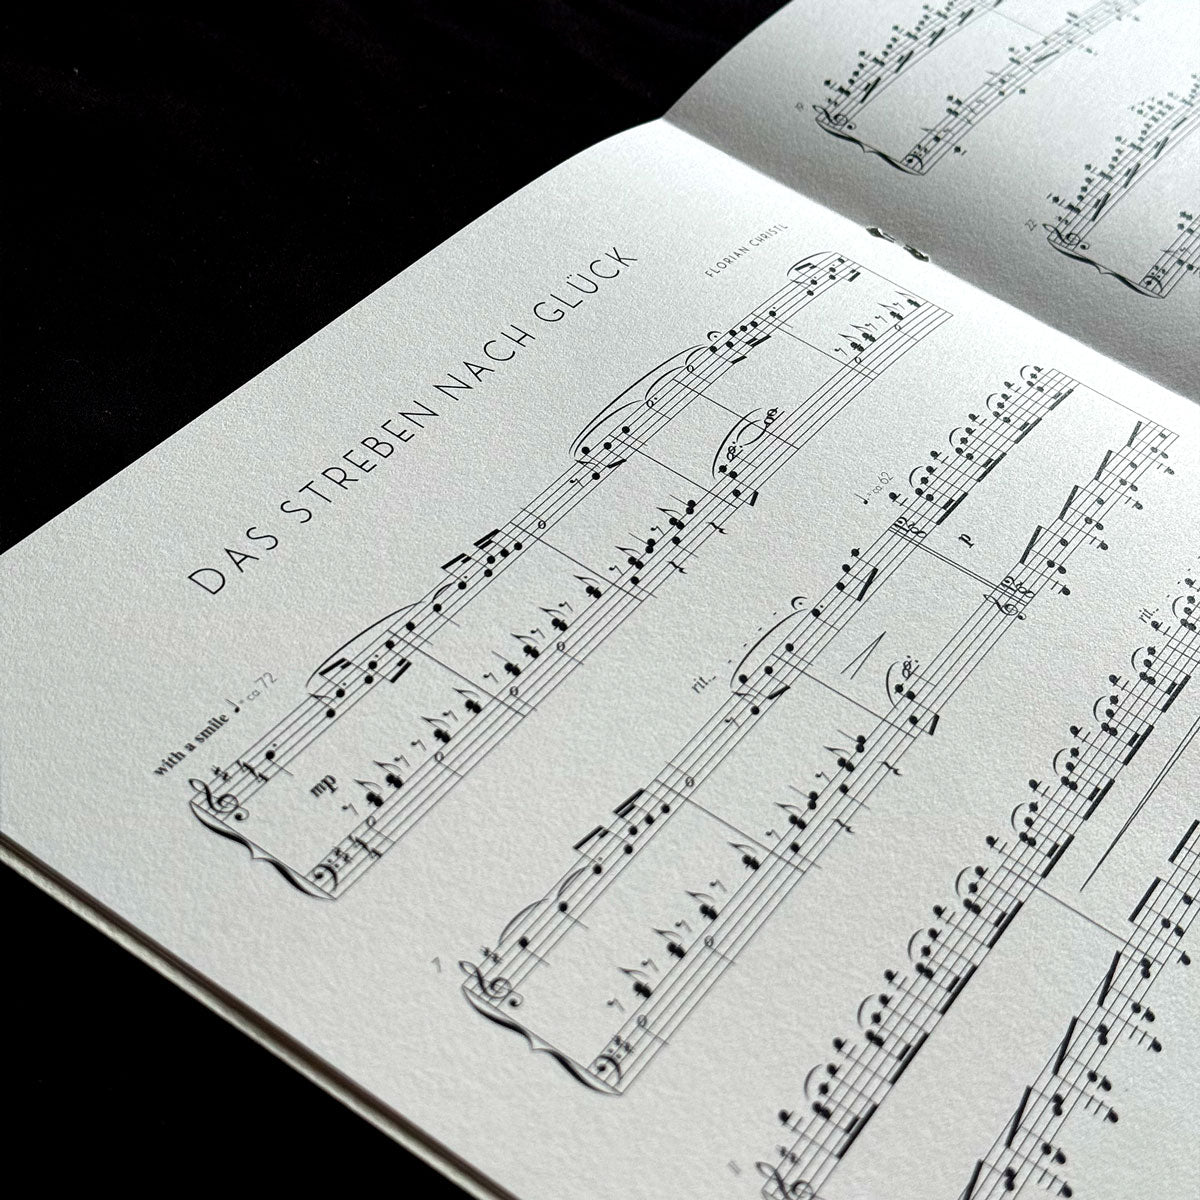 DAS STREBEN NACH GLÜCK
FLORIAN CHRISTL
with a smile ♩= ca 72
mp
7
rit.
♩= ca 62
p
rit.
11
22